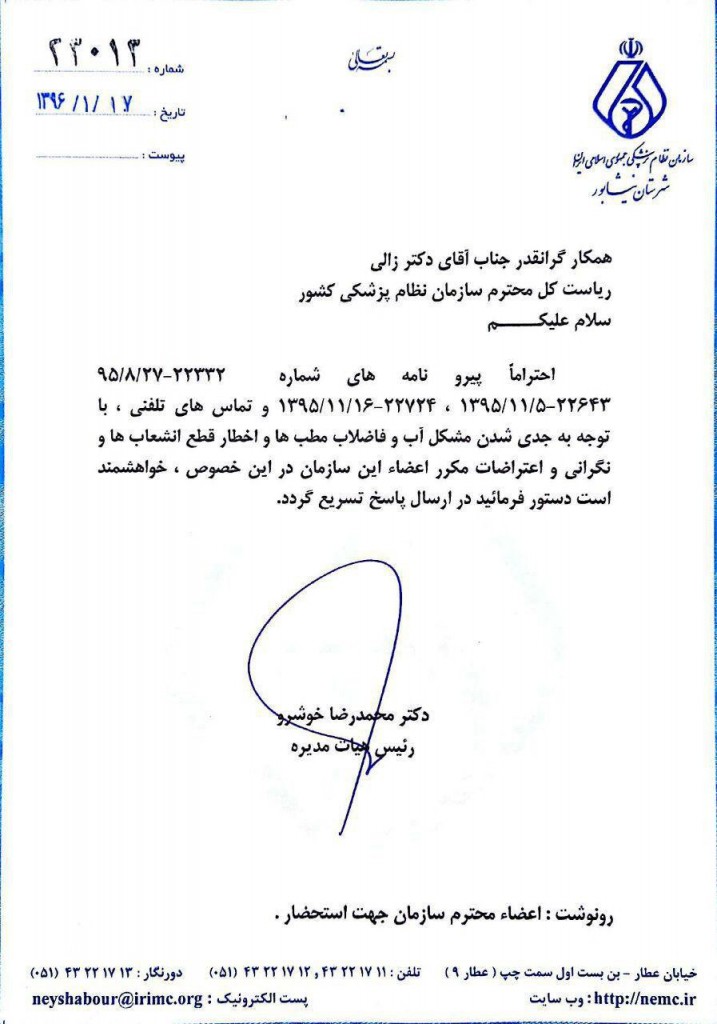 بسمه تعالی
شماره : ۲۳۰۱۳
تاریخ : ۱۳۹۶/۱/۱۷
پیوست :
سازمان نظام پزشکی جمهوری اسلامی ایران
شهرستان نیشابور
همکار گرانقدر جناب آقای دکتر زالی
ریاست کل محترم سازمان نظام پزشکی کشور
سلام علیکـــــم
احتراماً پیرو نامه های شماره ۲۲۳۳۲-۹۵/۸/۲۷
۲۲۶۴۳-۱۳۹۵/۱۱/۵ ، ۲۲۷۲۴-۱۳۹۵/۱۱/۱۶ و تماس های تلفنی ، با
توجه به جدی شدن مشکل آب و فاضلاب مطب ها و اخطار قطع انشعاب ها و
نگرانی و اعتراضات مکرر اعضاء این سازمان در این خصوص ، خواهشمند
است دستور فرمائید در ارسال پاسخ تسریع گردد.
دکتر محمدرضا خوشرو
رئیس هیات مدیره
رونوشت : اعضاء محترم سازمان جهت استحضار .
خیابان عطار - بن بست اول سمت چپ ( عطار ۹ ) تلفن : ۱۱ ۱۷ ۲۲ ۴۳ , ۱۲ ۱۷ ۲۲ ۴۳ (۰۵۱) دورنگار : ۱۳ ۱۷ ۲۲ ۴۳ (۰۵۱)
وب سایت : http://nemc.ir پست الکترونیک : neyshabour@irimc.org